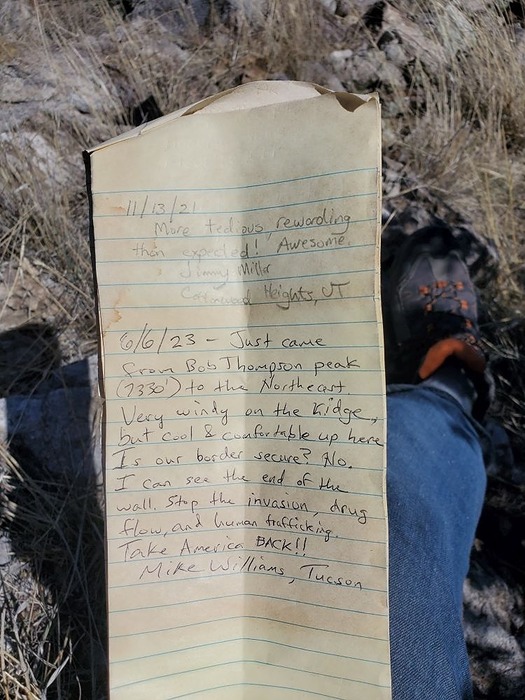 11/13/21
More tedious rewarding
than expected! Awesome.
Jimmy Miller
Cottonwood Heights, UT
6/6/23 - Just came
from Bob Thompson peak
(7330') to the Northeast.
Very windy on the ridge,
but cool & comfortable up here
Is our border secure? No.
I can see the end of the
wall. Stop the invasion, drug
flow, and human trafficking.
Take America BACK!!
Mike Williams, Tucson